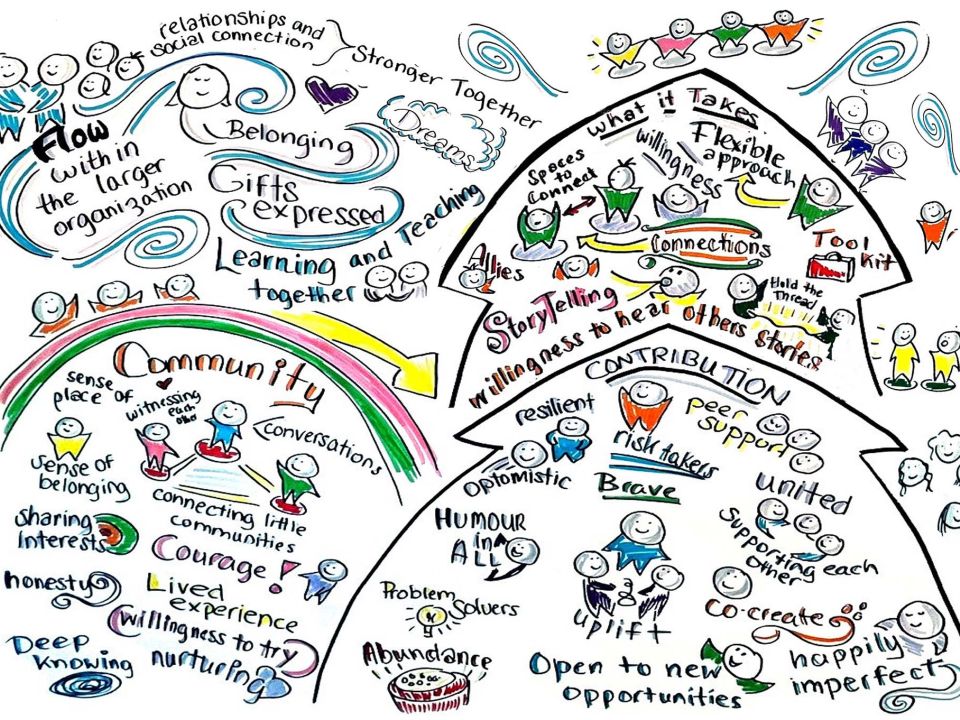 relationships and
social connection
Stronger Together
Flow
with in
the larger
organization
Belonging
Dreams
Gifts
expressed
Learning and Teaching
together
What it Takes
willingness
Flexible
approach
Spaces
to
Connect
Connections
Tool
kit
Allies
Hold the
Thread
StoryTelling
willingness to hear others stories
Community
sense
place of
witnessing
each
other
Conversations
Sense of
belonging
connecting little
communities
Sharing
Interests
Courage!
honesty
Lived
experience
Willingness to try
Deep
Knowing
nurturing
CONTRIBUTION
resilient
peer
support
optomistic
risk takers
Brave
united
HUMOUR
in
ALL
Supporting each
other
Problem
Solvers
uplift
co-create
Abundance
happily
imperfect
Open to new
opportunities